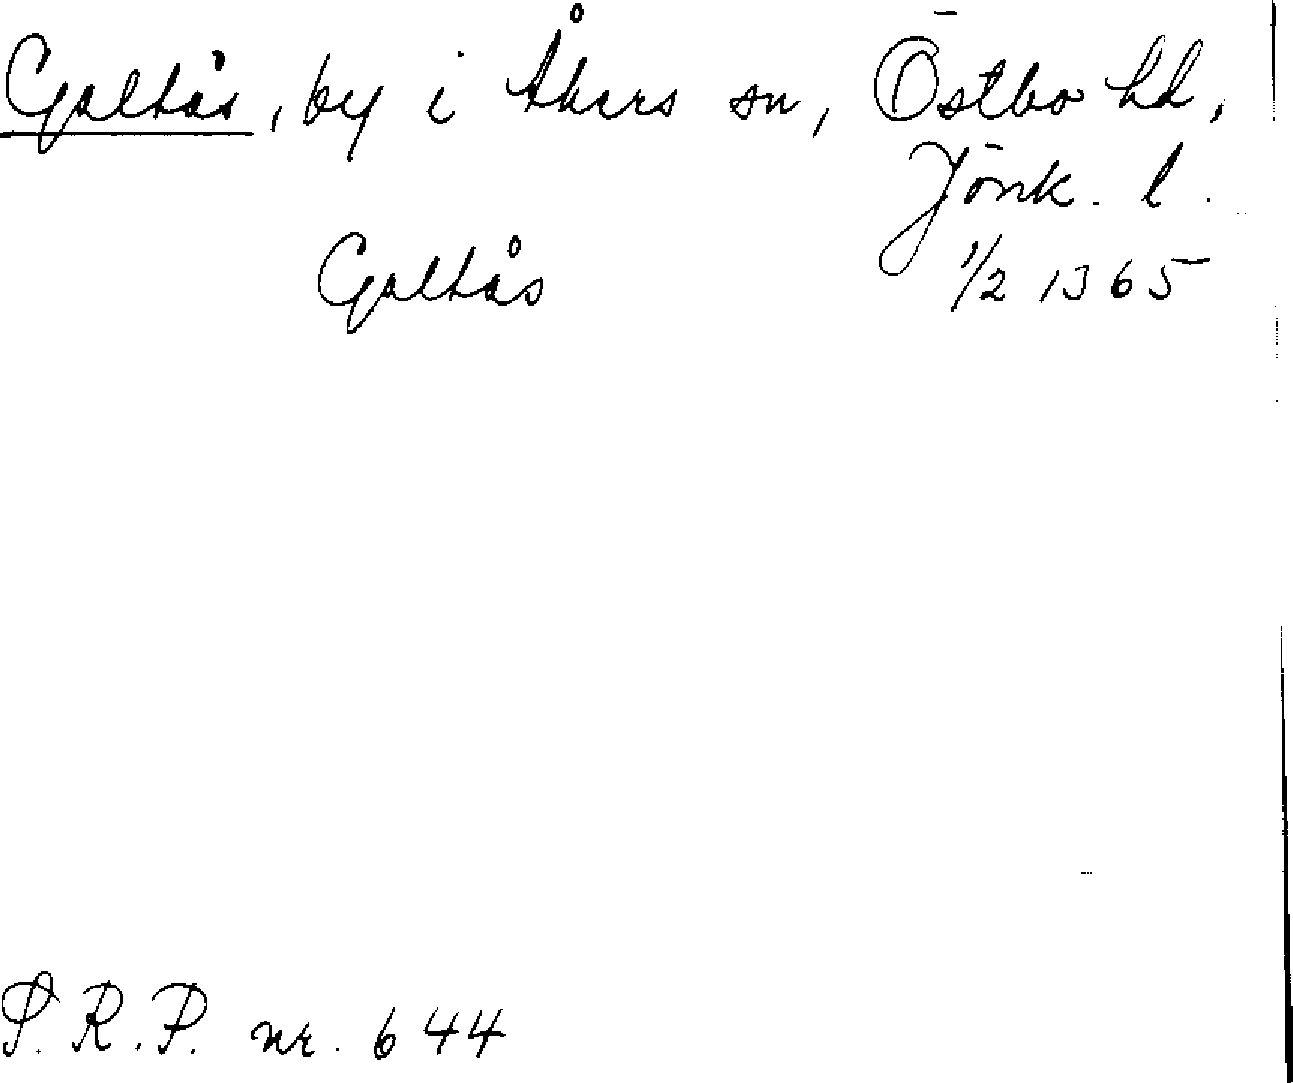 Galtås, by i Åkers sn, Östbo hd,
Jönk. l.
Galtås 1/2 1365
S.R.P. nr. 644